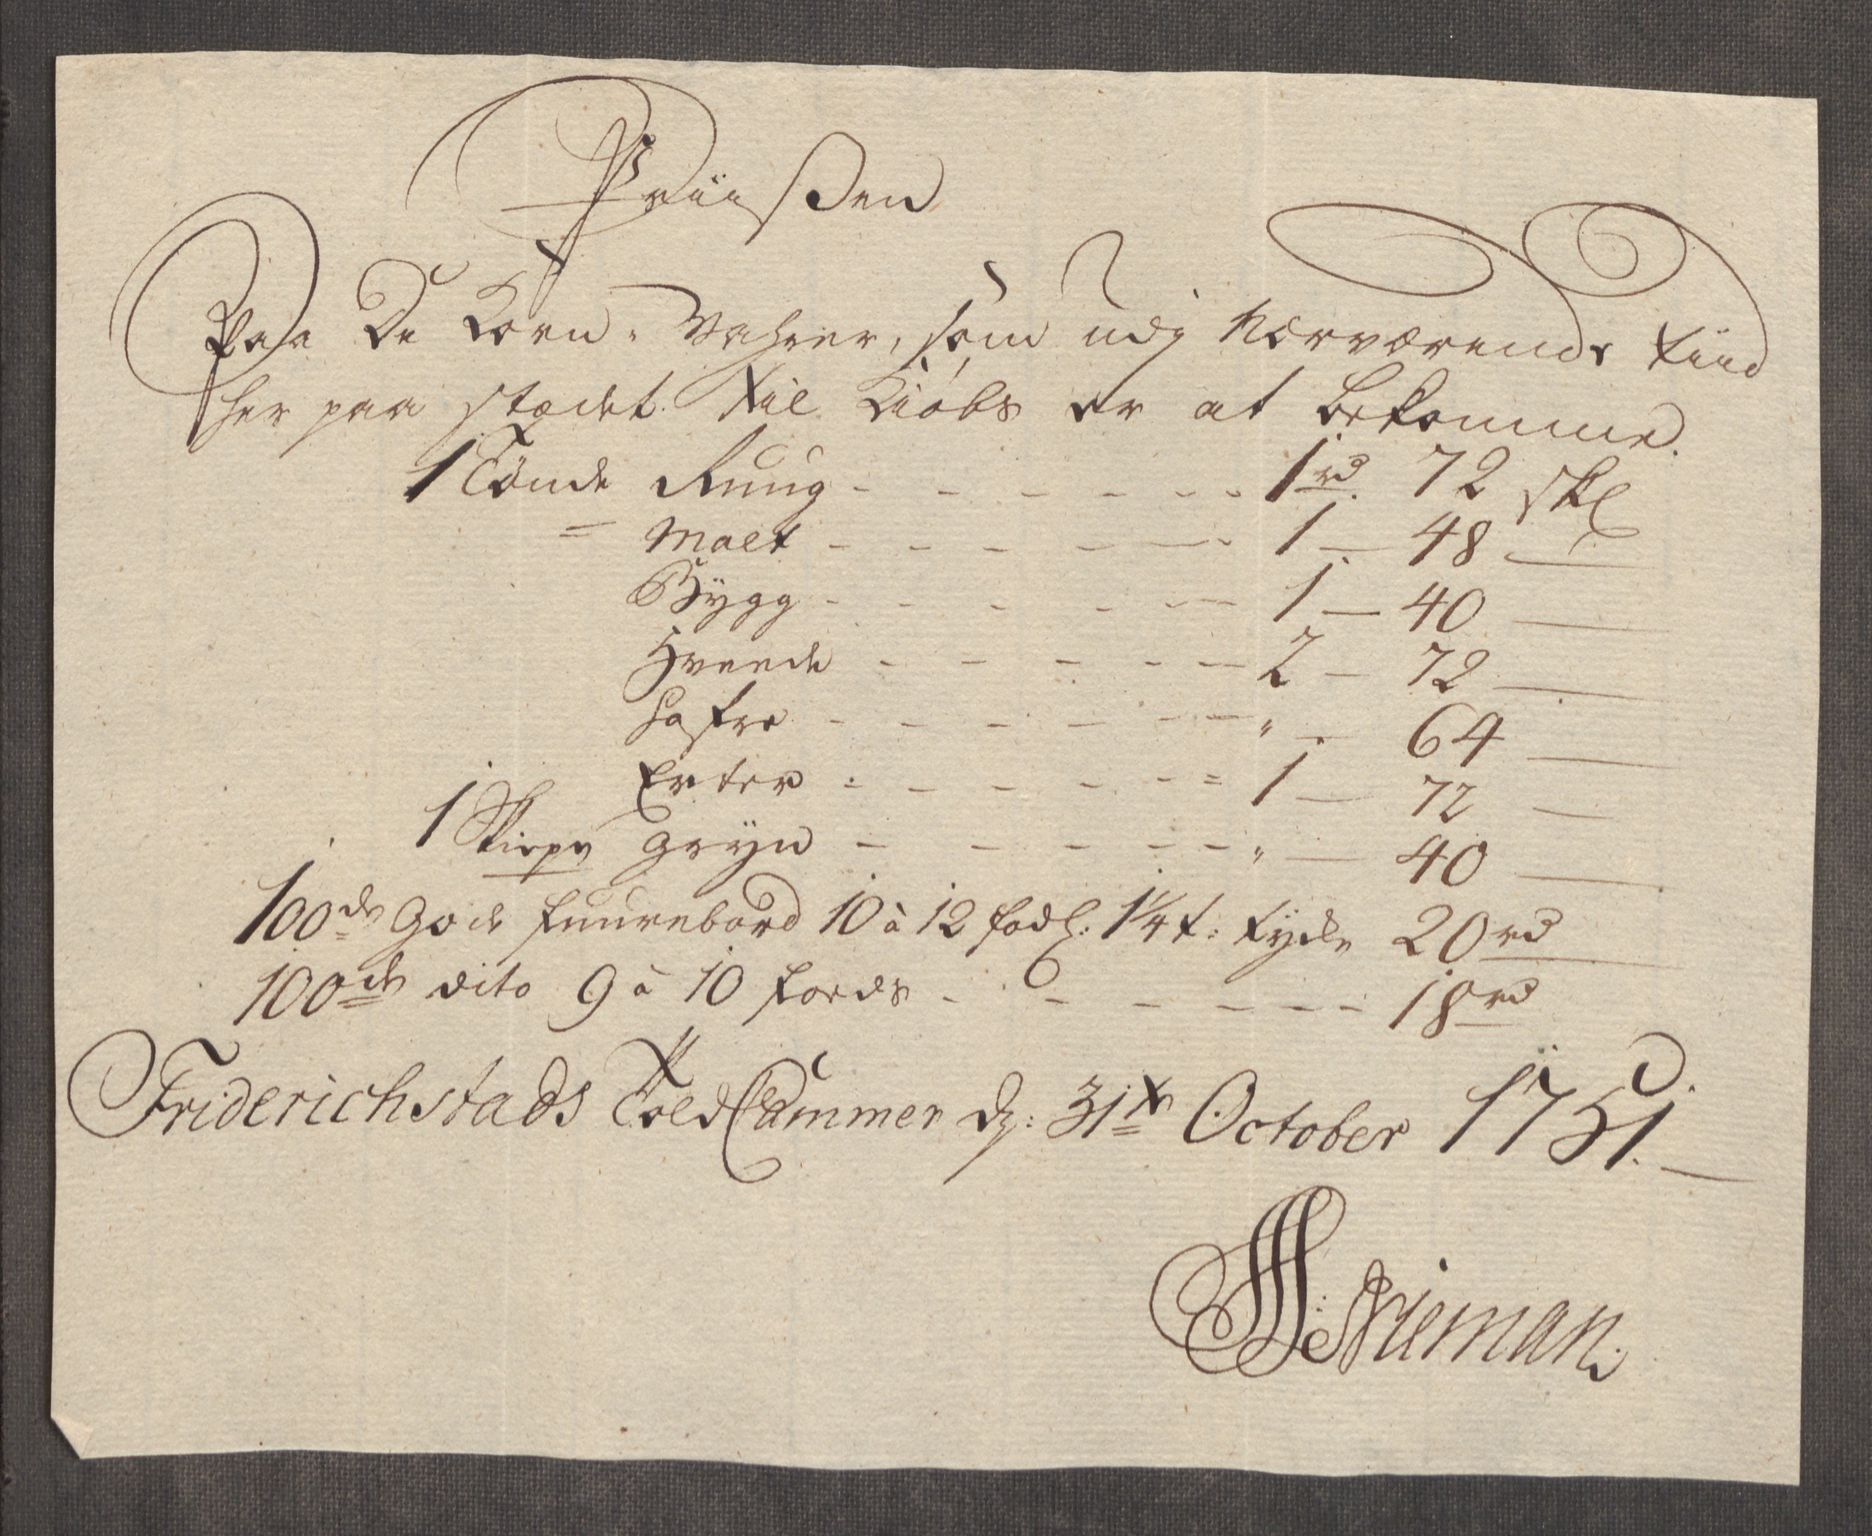 Priissen
Paa De Korn-Vahrer, som udj Nærværende Tiid
her paa stædet til Kiöbs er at bekomme.
1 Tönde Ruug - - - - - - 1 rd. 72 skl
= Malt - - - - - 1 — 48 —
Bÿgg - - - - - 1 — 40 —
Hveede - - - - - 2 — 72 —
Hafre - - - - - - " - 64 —
Erter - - - - - = 1 — 72 —
1 Skiepe Grÿn - - - - - " — 40 —
100de Gode Fuurebord 10 à 12 fod l. 1¼ t: tÿke 20 rd
100de dito 9 à 10 foeds - - - - - - 18 rd
Friderichstads Told Cammer d: 31te October 1751.
Nieman.